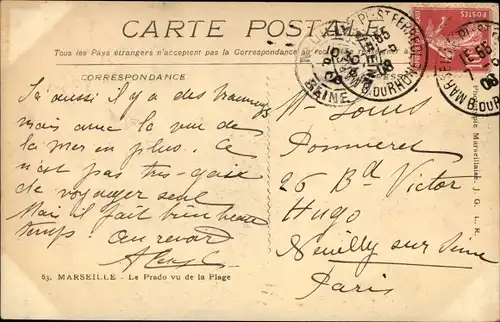 CARTE POSTALE
Tous les Pays étrangers n'acceptent pas la Correspondance au
CORRESPONDANCE
Ici aussi il y a des tramways
mais avec la vue de
la mer en plus. Ce
n'est pas très-gai
de voyager seul
Mais il fait bien beau
temps! Au revoir
63. MARSEILLE - Le Prado vu de la Plage
SEINE
MARSEILLE Pl. ST FERREOL
15 55
08
B. DU RHONE
POSTES
Mr Louis
Pommeret
26 Bd Victor
Hugo
Neuilly sur Seine
Paris
Marseillaise, J. G. L. R.